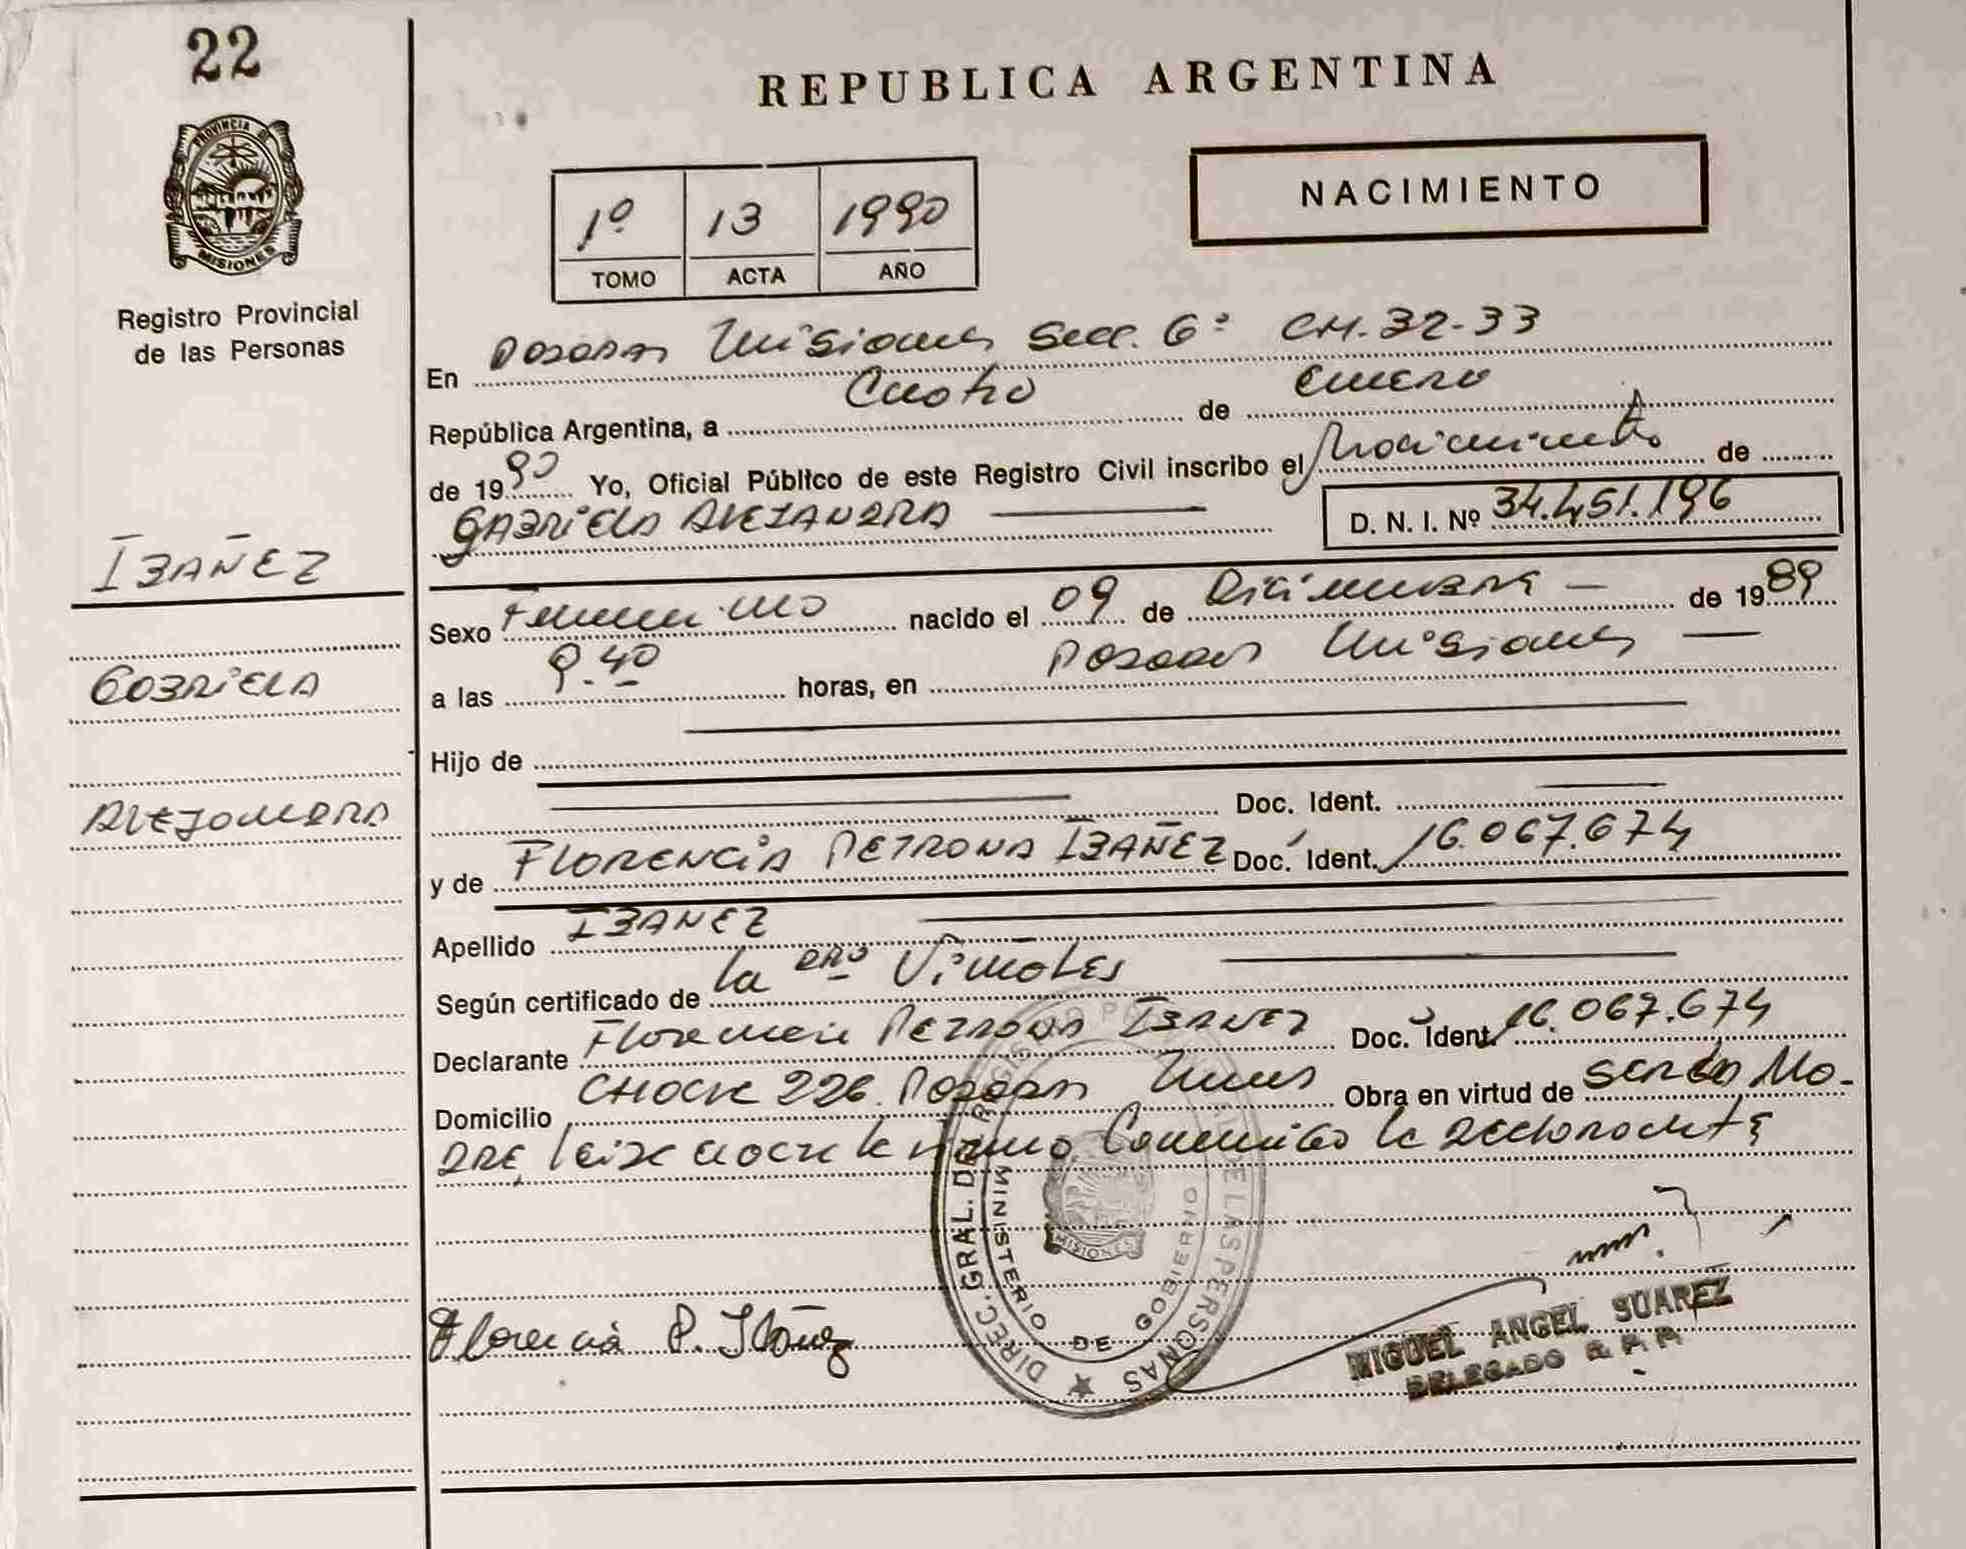 22
PROVINCIA DE
MISIONES
Registro Provincial
de las Personas
IBAÑEZ
Gabriela
Alejandra
REPUBLICA ARGENTINA
NACIMIENTO
1º 13 1990
TOMO ACTA AÑO
En Posadas Misiones Secc. 6º CH. 32-33
República Argentina, a Cuatro de Enero
de 1990 Yo, Oficial Público de este Registro Civil inscribo el Nacimiento de
GABRIELA ALEJANDRA D. N. I. Nº 34.451.196
Sexo Femenino nacido el 09 de Diciembre de 1989
a las 9.40 horas, en Posadas Misiones
Hijo de
Doc. Ident.
y de FLORENCIA PETRONA IBAÑEZ Doc. Ident. 16.067.674
Apellido IBAÑEZ
Según certificado de la Dra
Declarante Florencia Petrona IBAÑEZ Doc. Ident. 16.067.674
Domicilio 226 Posadas Mnes Obra en virtud de ser la Ma-
dre, la declarante
DIREC. GRAL. DEL REGISTRO PROVINCIAL DE LAS PERSONAS
MINISTERIO DE GOBIERNO
MISIONES
Florencia P. Ibáñez
MIGUEL ANGEL SUAREZ
DELEGADO R. P. P.